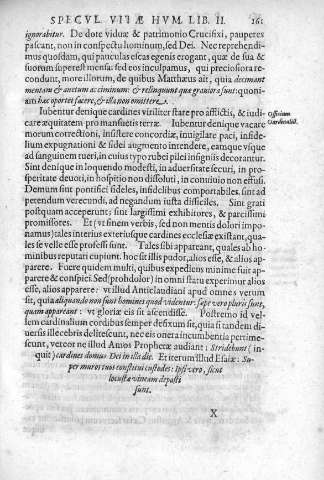 SPECVL. VITÆ HVM. LIB. II. 261
ignorabitur. De dote viduæ & patrimonio Crucifixi, pauperes
pascant, non in conspectu hominum, sed Dei. Nec reprehendi-
mus quosdam, qui pauculas escas egenis erogant, quæ de sua &
suorum superest mensa: sed eos inculpamus, qui preciosiora re-
condunt, more illorum, de quibus Matthæus ait, quia decimant
mentam & anetum ac ciminum: & relinquunt quæ graviora sunt: quoni-
am hæc oportet facere, & illa non omittere.
Iubentur denique cardines viriliter stare pro afflictis, & iudi-
care æquitatem pro mansuetis terræ. Iubentur denique vacare
Officium
Cardinaliũ.
morum correctioni, insistere concordiæ, invigilare paci, infide-
lium expugnationi & fidei augmento intendere, eamque vsque
ad sanguinem tueri, in cuius typo rubei pilei insigniis decorantur.
Sint denique in loquendo modesti, in adversitate securi, in pro-
speritate devoti, in hospitio non dissoluti, in convivio non effusi.
Demum sint pontifici fideles, infidelibus comportabiles. sint ad
petendum verecundi, ad negandum iusta difficiles. Sint grati
postquam acceperunt: sint largissimi exhibitores, & parcissimi
promissores. Et (vt finem verbis, sed non mentis dolori impo-
namus) tales interius exteriusque cardines ecclesiæ existant, qua-
les se velle esse professi sunt. Tales sibi appareant, quales ab ho-
minibus reputari cupiunt. hoc sit illis pudor, alios esse, & alios ap-
parere. Fuere quidem multi, quibus expediens minime fuit ap-
parere & conspici. Sed (proh dolor) in omni statu experimur alios
esse, alios apparere: vt illud Anticlaudiani apud omnes verum
sit, quia aliquando non sunt homines quod videntur. sæpe vero pluris sunt,
quam appareant: vt gloriæ eis sit ascendisse. Postremo id vel-
lem cardinalium cordibus semper defixum sit, quia si tandem di-
uersis illecebris delitescunt, nec eis onera incumbentia pertime-
scunt, vereor ne illud Amos Prophetæ audiant: Stridebunt (in-
quit) cardines domus Dei in illa die. Et iterum illud Esaiæ: Su-
per muros tuos constitui custodes: Ipsi vero, sicut
locustæ vineam depasti
sunt.
X